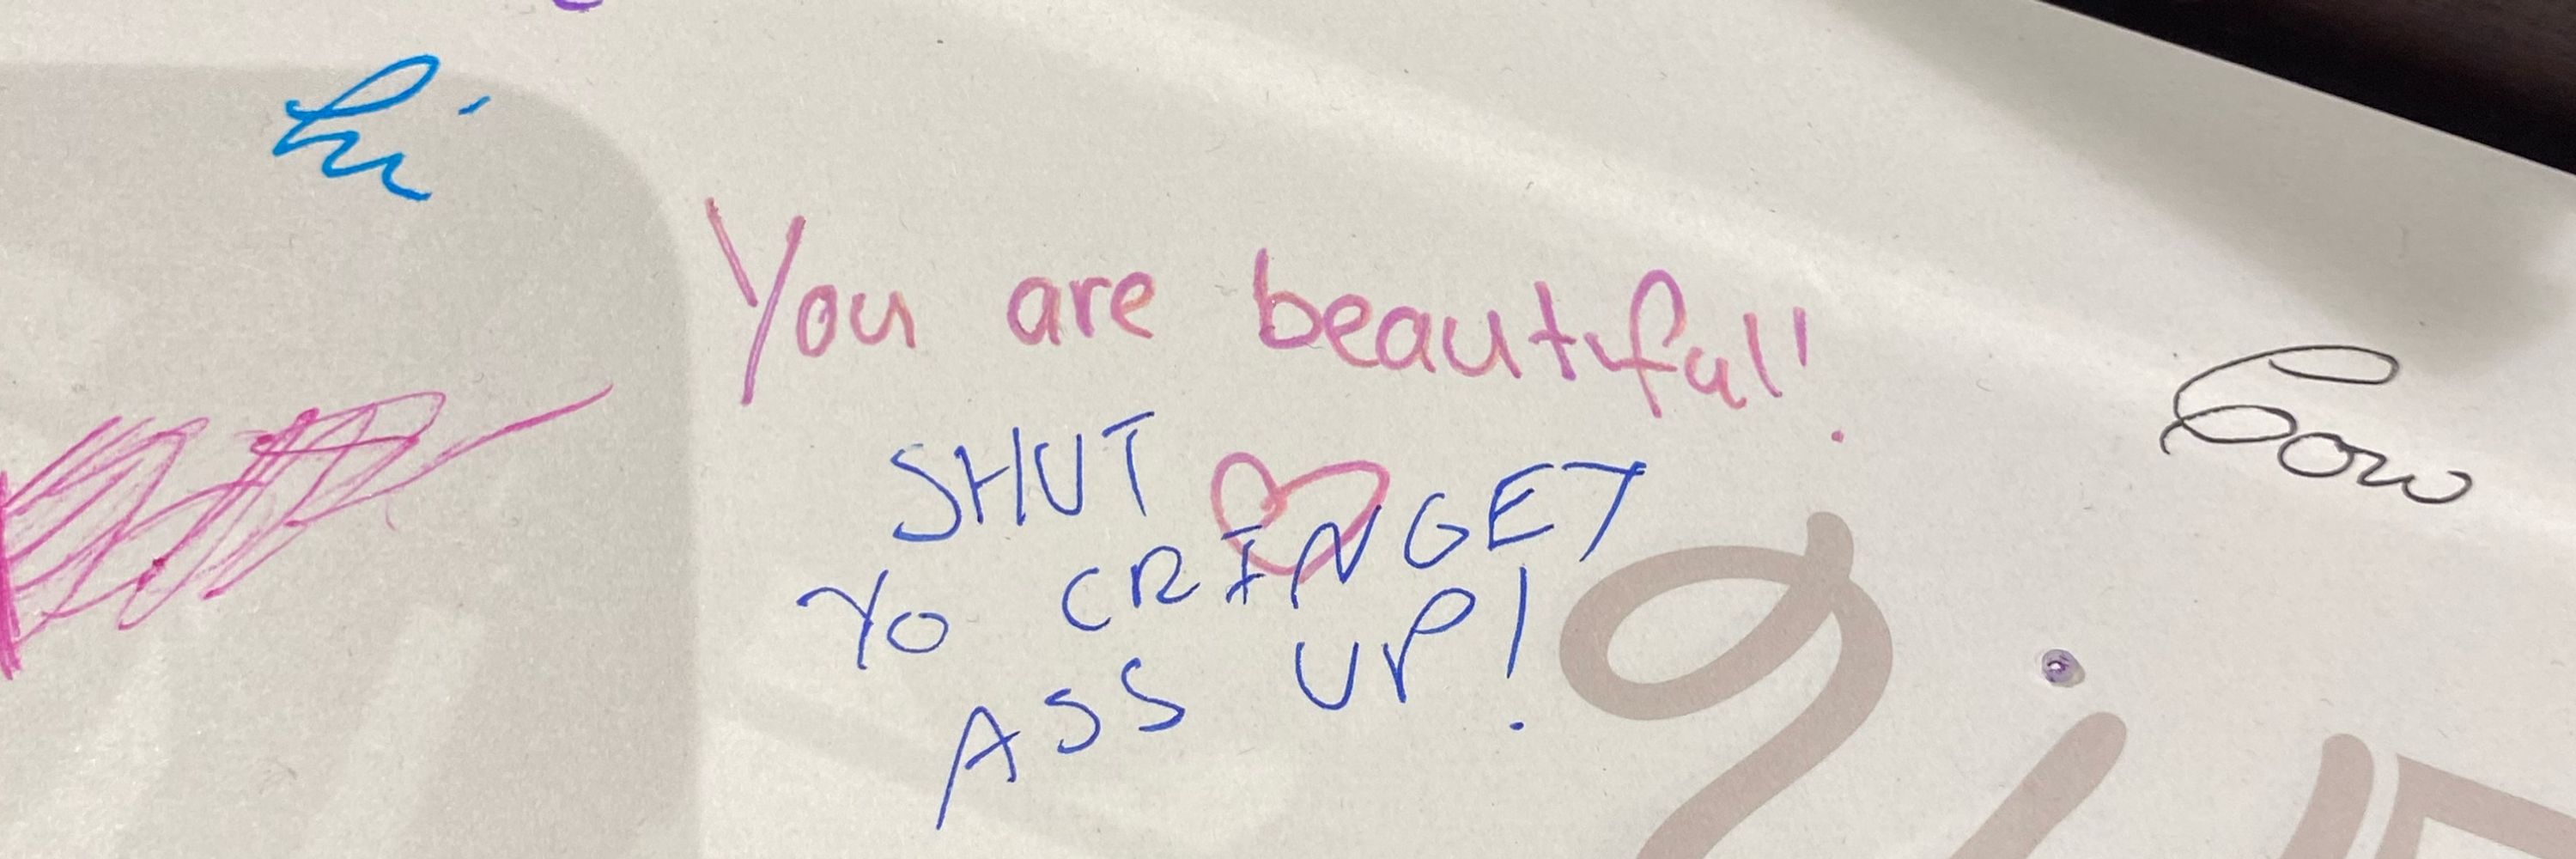 hi
You are beautiful!
SHUT
YO CRINGEY
ASS UP!
Cow